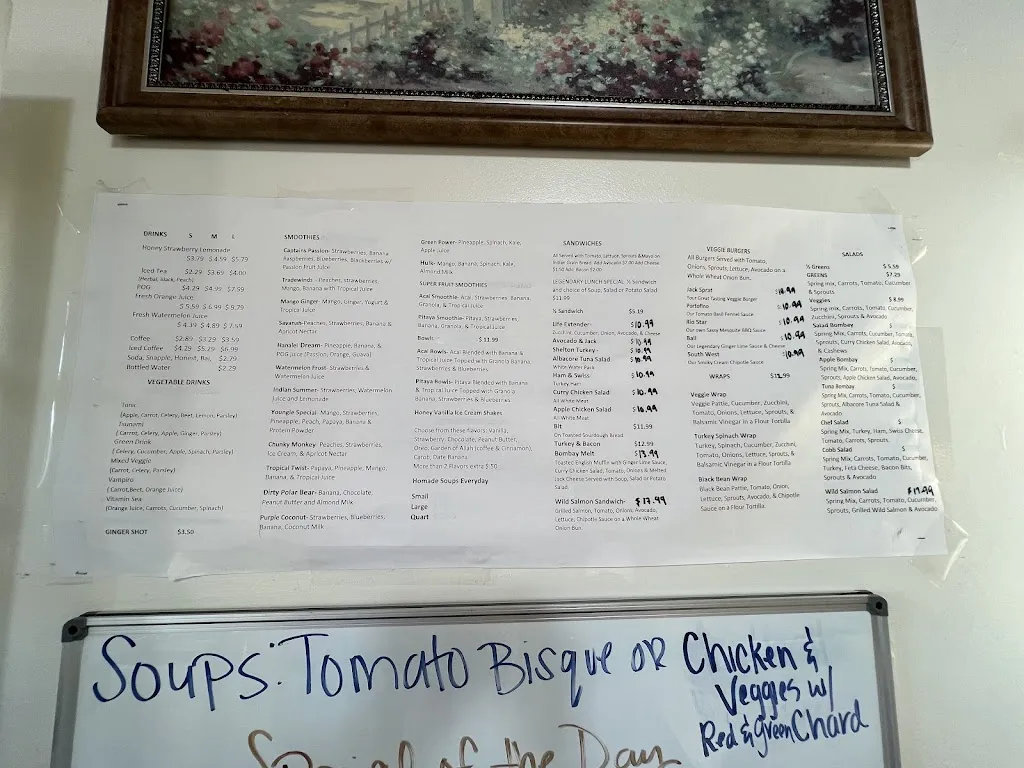 DRINKS S M L
Honey Strawberry Lemonade
$3.79 $4.59 $5.79
Iced Tea $2.29 $3.69 $4.00
(Herbal, Black, Peach)
POG $4.29 $4.99 $7.59
Fresh Orange Juice
$5.59 $6.99 $9.79
Fresh Watermelon Juice
$4.19 $4.89 $7.59
Coffee $2.89 $3.29 $3.59
Iced Coffee $4.29 $5.29 $6.99
Soda, Snapple, Honest, Rai, $2.79
Bottled Water $2.29
VEGETABLE DRINKS
Tonic
(Apple, Carrot, Celery, Beet, Lemon, Parsley)
Tsunami
( Carrot, Celery, Apple, Ginger, Parsley)
Green Drink
( Celery, Cucumber, Apple, Spinach, Parsley)
Mixed Veggie
(Carrot, Celery, Parsley)
Vampiro
(Carrot,Beet, Orange Juice)
Vitamin Sea
(Orange Juice, Carrots, Cucumber, Spinach)
GINGER SHOT $3.50
SMOOTHIES
Captains Passion- Strawberries, Banana
Raspberries, Blueberries, Blackberries w/
Passion Fruit Juice
Tradewinds - Peaches, strawberries,
Mango, Banana with Tropical Juice
Mango Ginger- Mango, Ginger, Yogurt &
Tropical Juice
Savarun- Peaches, Strawberries, Banana &
Apricot Nectar
Hanalei Dream- Pineapple, Banana, &
POG juice (Passion, Orange, Guava)
Watermelon Frost- Strawberries &
Watermelon Juice
Indian Summer- Strawberries, Watermelon
Juice and Lemonade
Youngie Special- Mango, Strawberries,
Pineapple, Peach, Papaya, Banana &
Protein Powder
Chunky Monkey- Peaches, Strawberries,
Ice Cream, & Apricot Nectar
Tropical Twist- Papaya, Pineapple, Mango,
Banana, & Tropical Juice
Dirty Polar Bear- Banana, Chocolate,
Peanut Butter and Almond Milk
Purple Coconut- Strawberries, Blueberries,
Banana, Coconut Milk
Green Power- Pineapple, Spinach, Kale,
Apple Juice
Hulk- Mango, Banana, Spinach, Kale,
Almond Milk
SUPER FRUIT SMOOTHIES
Acai Smoothie- Acai, Strawberries, Banana,
Granola, & Tropical Juice
Pitaya Smoothie- Pitaya, Strawberries,
Banana, Granola, & Tropical Juice
Bowls $11.99
Acai Bowls- Acai Blended with Banana
& Tropical Juice Topped with Granola Banana,
Strawberries & Blueberries
Pitaya Bowls- Pitaya Blended with Banana
& Tropical Juice Topped with Granola
Banana, Strawberries & Blueberries
Honey Vanilla Ice Cream Shakes
Choose from these flavors: Vanilla,
Strawberry, Chocolate, Peanut Butter,
Oreo, Garden of Allah (Coffee & Cinnamon),
Carob, Date Banana
More than 2 Flavors extra $.50
Homade Soups Everyday
Small
Large
Quart
SANDWICHES
All Served with Tomato, Lettuce, Sprouts & Mayo on
Indian Grain Bread. Add Avocado $2.00 Add Cheese
$1.50 Add Bacon $2.00
LEGENDARY LUNCH SPECIAL: ½ Sandwich
and choice of Soup, Salad or Potato Salad
$11.99
½ Sandwich $5.19
Life Extender- $10.99
Zucchini, Cucumber, Onion, Avocado, & Cheese
Avocado & Jack $10.99
Shelton Turkey- $10.99
Albacore Tuna Salad $10.99
White Water Pack
Ham & Swiss $10.99
Turkey Ham
Curry Chicken Salad $10.99
All White Meat
Apple Chicken Salad $10.99
All White Meat
Blt $11.99
On Toasted Sourdough Bread
Turkey & Bacon $12.99
Bombay Melt $13.99
Toasted English Muffin with Ginger Lime Sauce,
Curry Chicken Salad, Tomato, Onions & Melted
Jack Cheese Served with Soup, Salad or Potato
Salad
Wild Salmon Sandwich- $17.99
Grilled Salmon, Tomato, Onions, Avocado,
Lettuce, Chipotle Sauce on a Whole Wheat
Onion Bun.
VEGGIE BURGERS
All Burgers Served with Tomato,
Onions, Sprouts, Lettuce, Avocado on a
Whole Wheat Onion Bun.
Jack Sprat $10.99
Your Great Tasting Veggie Burger
Portofino $10.99
Our Tomato Basil Fennel Sauce
Rio Star $10.99
Our own Sassy Mesquite BBQ Sauce
Bali $10.99
Our Legendary Ginger Lime Sauce & Cheese
South West $10.99
Our Smoky Cream Chipotle Sauce
WRAPS $11.99
Veggie Wrap
Veggie Pattie, Cucumber, Zucchini,
Tomato, Onions, Lettuce, Sprouts, &
Balsamic Vinegar in a Flour Tortilla
Turkey Spinach Wrap
Turkey, Spinach, Cucumber, Zucchini,
Tomato, Onions, Lettuce, Sprouts, &
Balsamic Vinegar in a Flour Tortilla
Black Bean Wrap
Black Bean Patty, Tomato, Onion,
Lettuce, Sprouts, Avocado, & Chipotle
Sauce on a Flour Tortilla.
SALADS
½ Greens $ 5.59
GREENS $7.29
Spring mix, Carrots, Tomato, Cucumber
& Sprouts
Veggies $ 8.99
Spring mix, Carrots, Tomato, Cucumber,
Zucchini, Sprouts & Avocado
Salad Bombay $
Spring Mix, Carrots, Tomato, Cucumber,
Sprouts, Curry Chicken Salad, Avocado,
& Cashews
Apple Bombay $
Spring Mix, Carrots, Tomato, Cucumber,
Sprouts, Apple Chicken Salad, Avocado,
Tuna Bombay $
Spring Mix, Carrots, Tomato, Cucumber,
Sprouts, Albacore Tuna Salad &
Avocado
Chef Salad $
Spring Mix, Turkey, Ham, Swiss Cheese,
Tomato, Carrots, Sprouts,
Cobb Salad $
Spring Mix, Carrots, Tomato, Cucumber,
Turkey, Feta Cheese, Bacon Bits,
Sprouts & Avocado
Wild Salmon Salad $17.99
Spring Mix, Carrots, Tomato, Cucumber,
Sprouts, Grilled Wild Salmon & Avocado
Soups: Tomato Bisque OR Chicken &
Veggies w/
Red & green Chard
Special of the Day